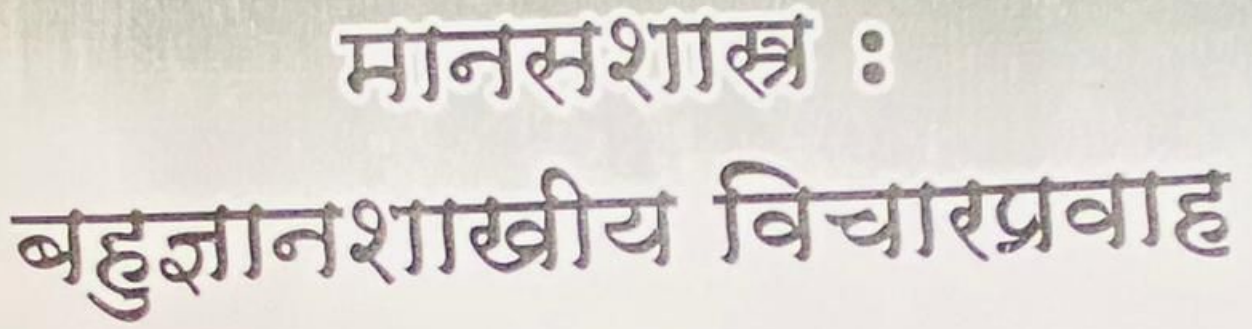 मानसशास्त्र :
बहुज्ञानशाखीय विचारप्रवाह